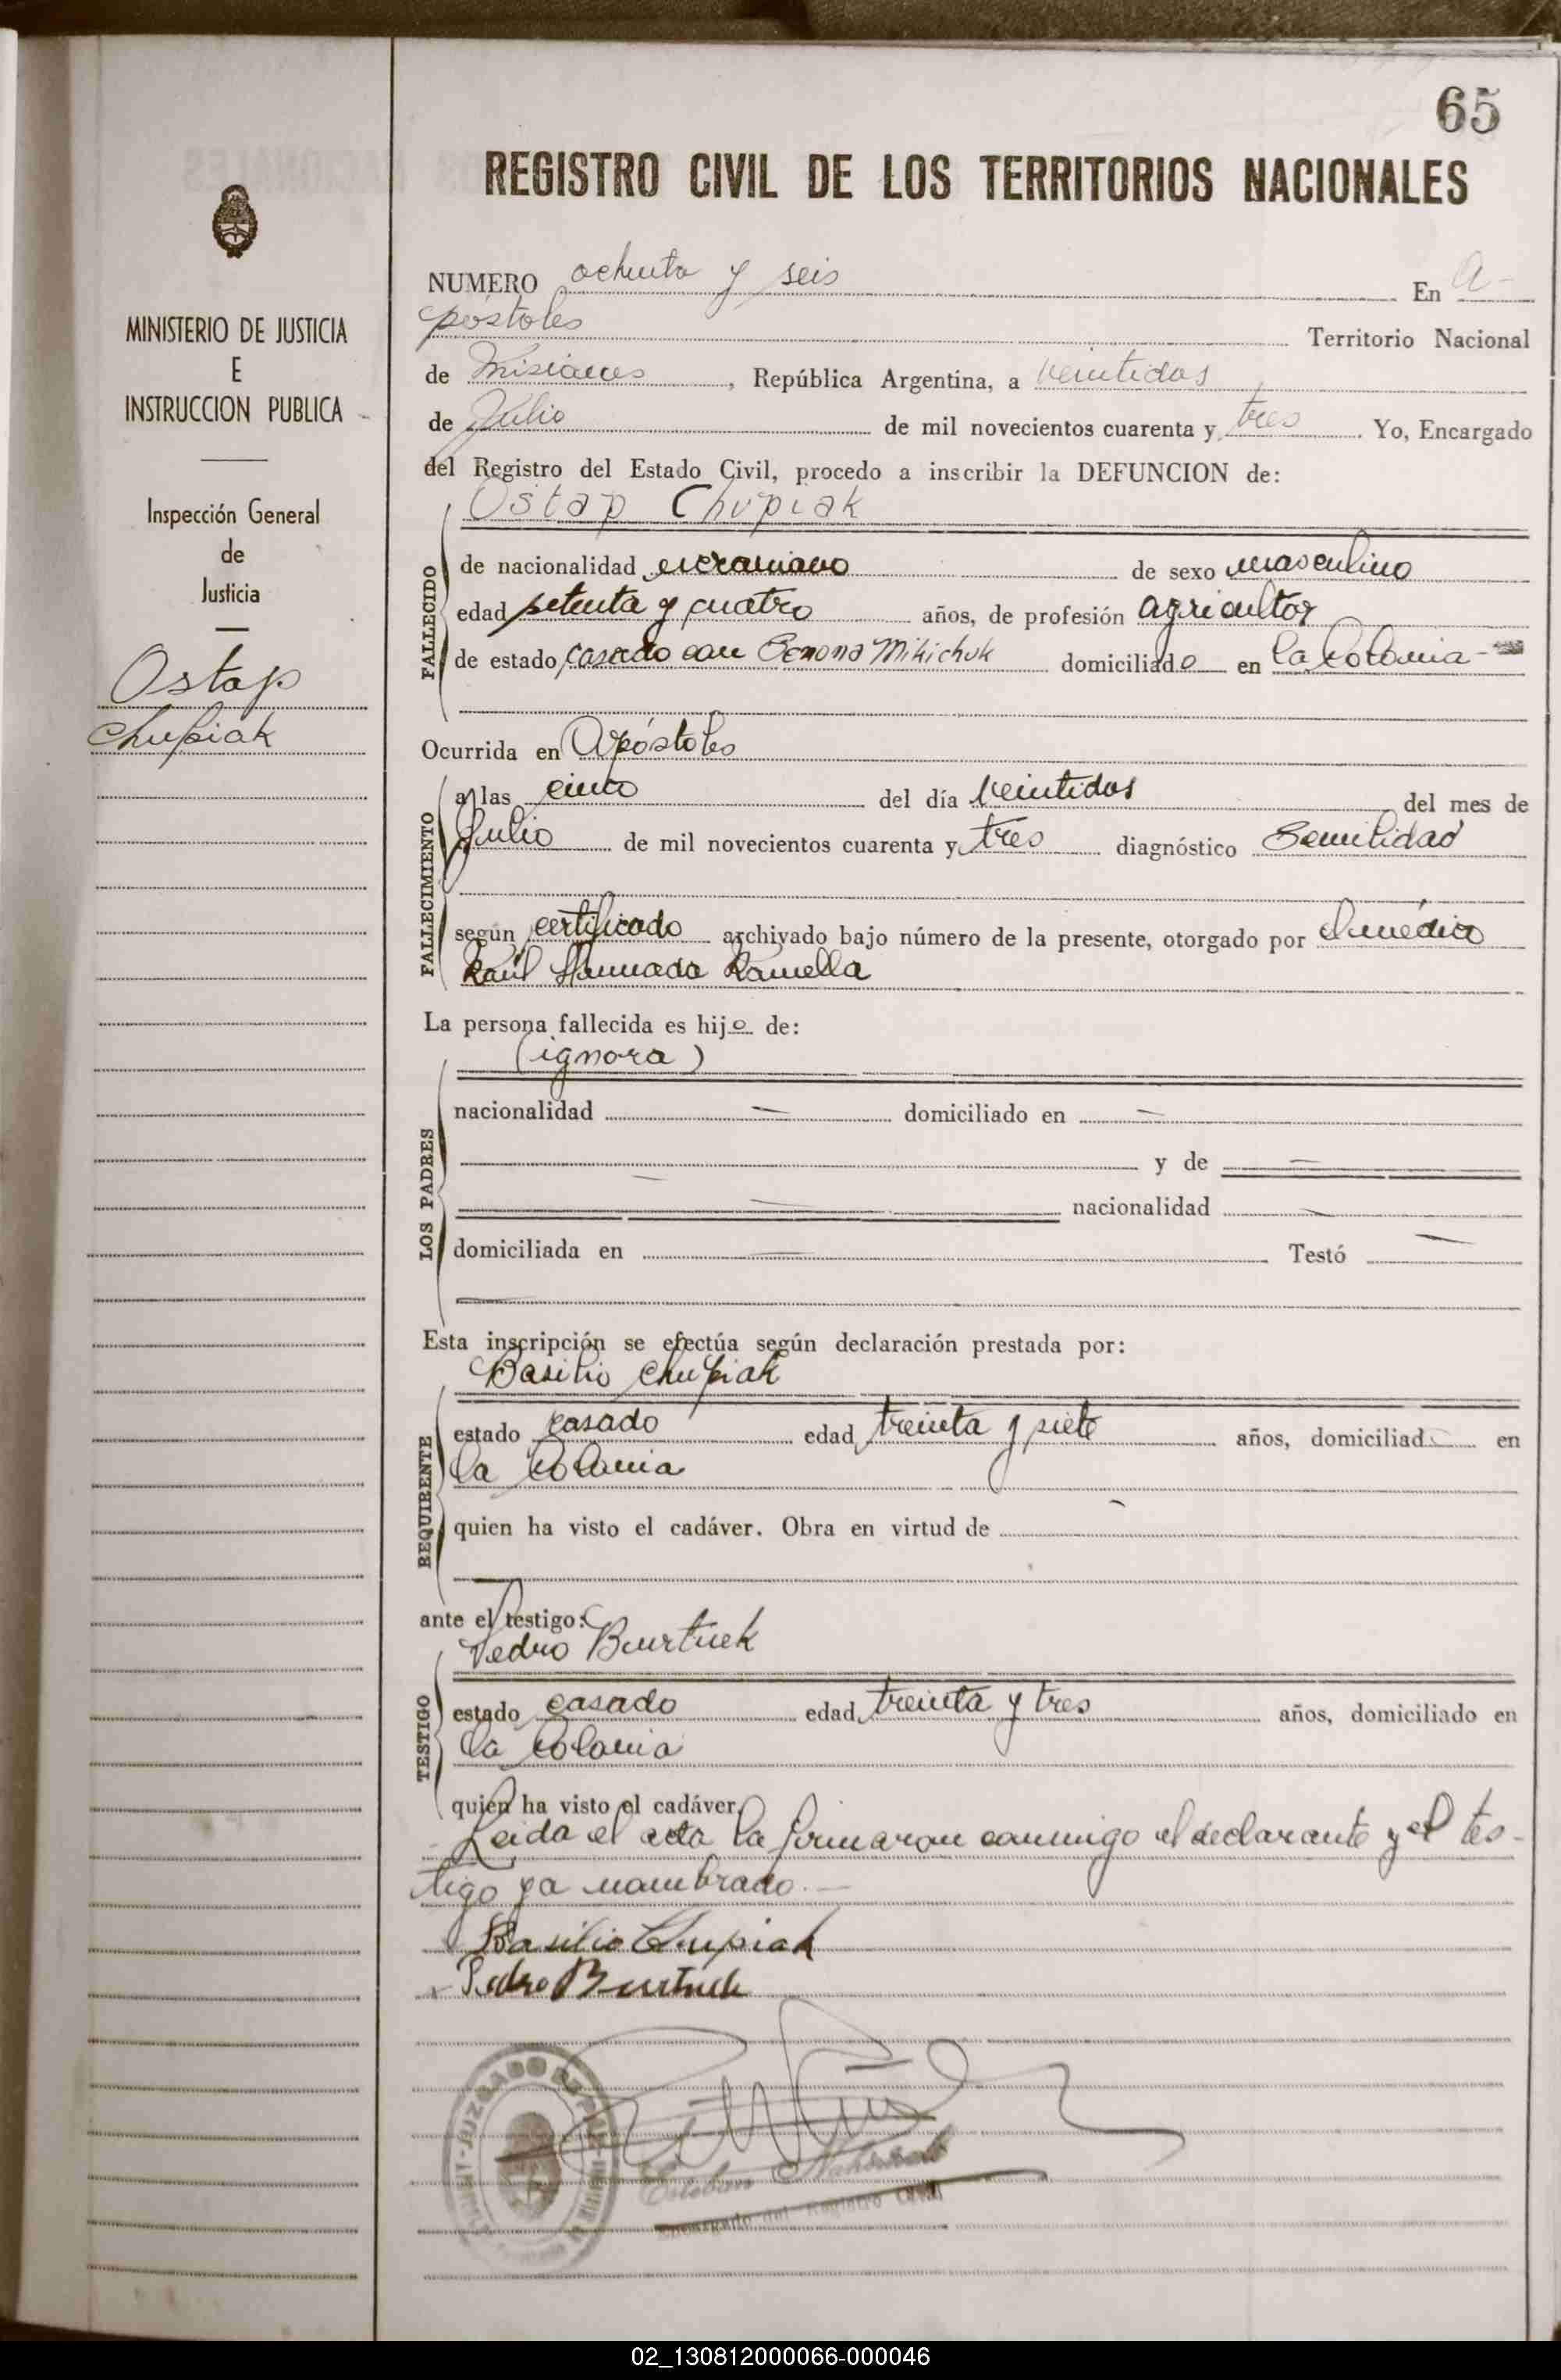 65
REGISTRO CIVIL DE LOS TERRITORIOS NACIONALES
MINISTERIO DE JUSTICIA
E
INSTRUCCION PUBLICA
Inspección General
de
Justicia
Ostap
Chupiak
NUMERO ochenta y seis En A-
póstoles Territorio Nacional
de Misiones, República Argentina, a veintidos
de Julio de mil novecientos cuarenta y tres. Yo, Encargado
del Registro del Estado Civil, procedo a inscribir la DEFUNCION de:
Ostap Chupiak
FALLECIDO
de nacionalidad ucraniano de sexo masculino
edad setenta y cuatro años, de profesión agricultor
de estado casado con Mikichuk domiciliado en la Colonia
Ocurrida en Apóstoles
FALLECIMIENTO
a las cinco del día veintidos del mes de
Julio de mil novecientos cuarenta y tres diagnóstico Senilidad
según certificado archivado bajo número de la presente, otorgado por el médico
Raúl Ramella
La persona fallecida es hijo de:
(ignora)
LOS PADRES
nacionalidad — domiciliado en —
— y de —
— nacionalidad —
domiciliada en — Testó —
Esta inscripción se efectúa según declaración prestada por:
Basilio Chupiak
REQUIRENTE
estado casado edad treinta y siete años, domiciliado en
la Colonia
quien ha visto el cadáver. Obra en virtud de —
ante el testigo:
Pedro Burtnek
TESTIGO
estado casado edad treinta y tres años, domiciliado en
la Colonia
quien ha visto el cadáver.
Leida el acta la firmaron conmigo el declarante y el tes-
tigo ya nombrado.—
Basilio Chupiak
Pedro Burtnek
JUZGADO DE PAZ
Esteban
Encargado del Registro Civil
02_130812000066-000046